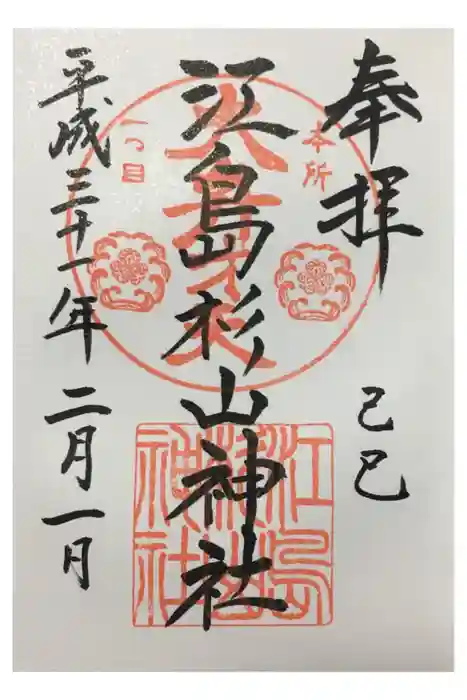 奉拝
己巳
江島杉山神社
平成三十一年二月一日
本所
一つ目
大弁才天
江島杉山神社